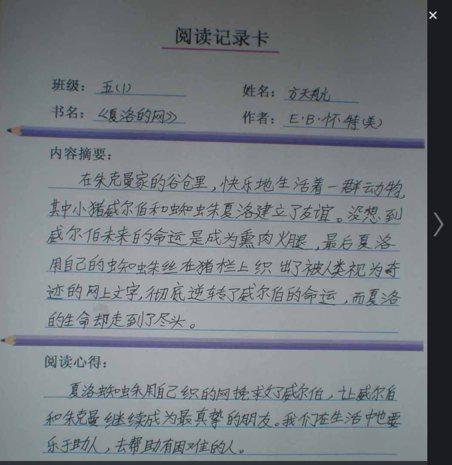 阅读记录卡
班级：五(1) 姓名：方天
书名：《夏洛的网》 作者：E·B·怀特(美)
内容摘要：
在朱克曼家的谷仓里，快乐地生活着一群动物，
其中小猪威尔伯和蜘蛛夏洛建立了友谊。没想到
威尔伯未来的命运是成为熏肉火腿，最后夏洛
用自己的蜘蛛丝在猪栏上织出了被人类视为奇
迹的网上文字，彻底逆转了威尔伯的命运，而夏洛
的生命却走到了尽头。
阅读心得：
夏洛蜘蛛用自己织的网挽求了威尔伯，让威尔伯
和朱克曼继续成为最真挚的朋友。我们在生活中也要
乐于助人，去帮助有困难的人。